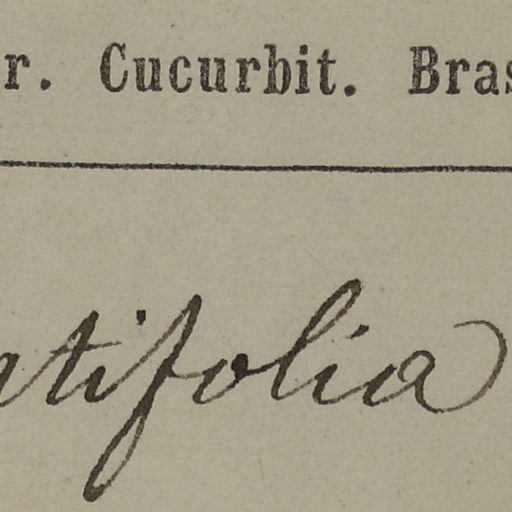 r. Cucurbit. Bras
ntifolia